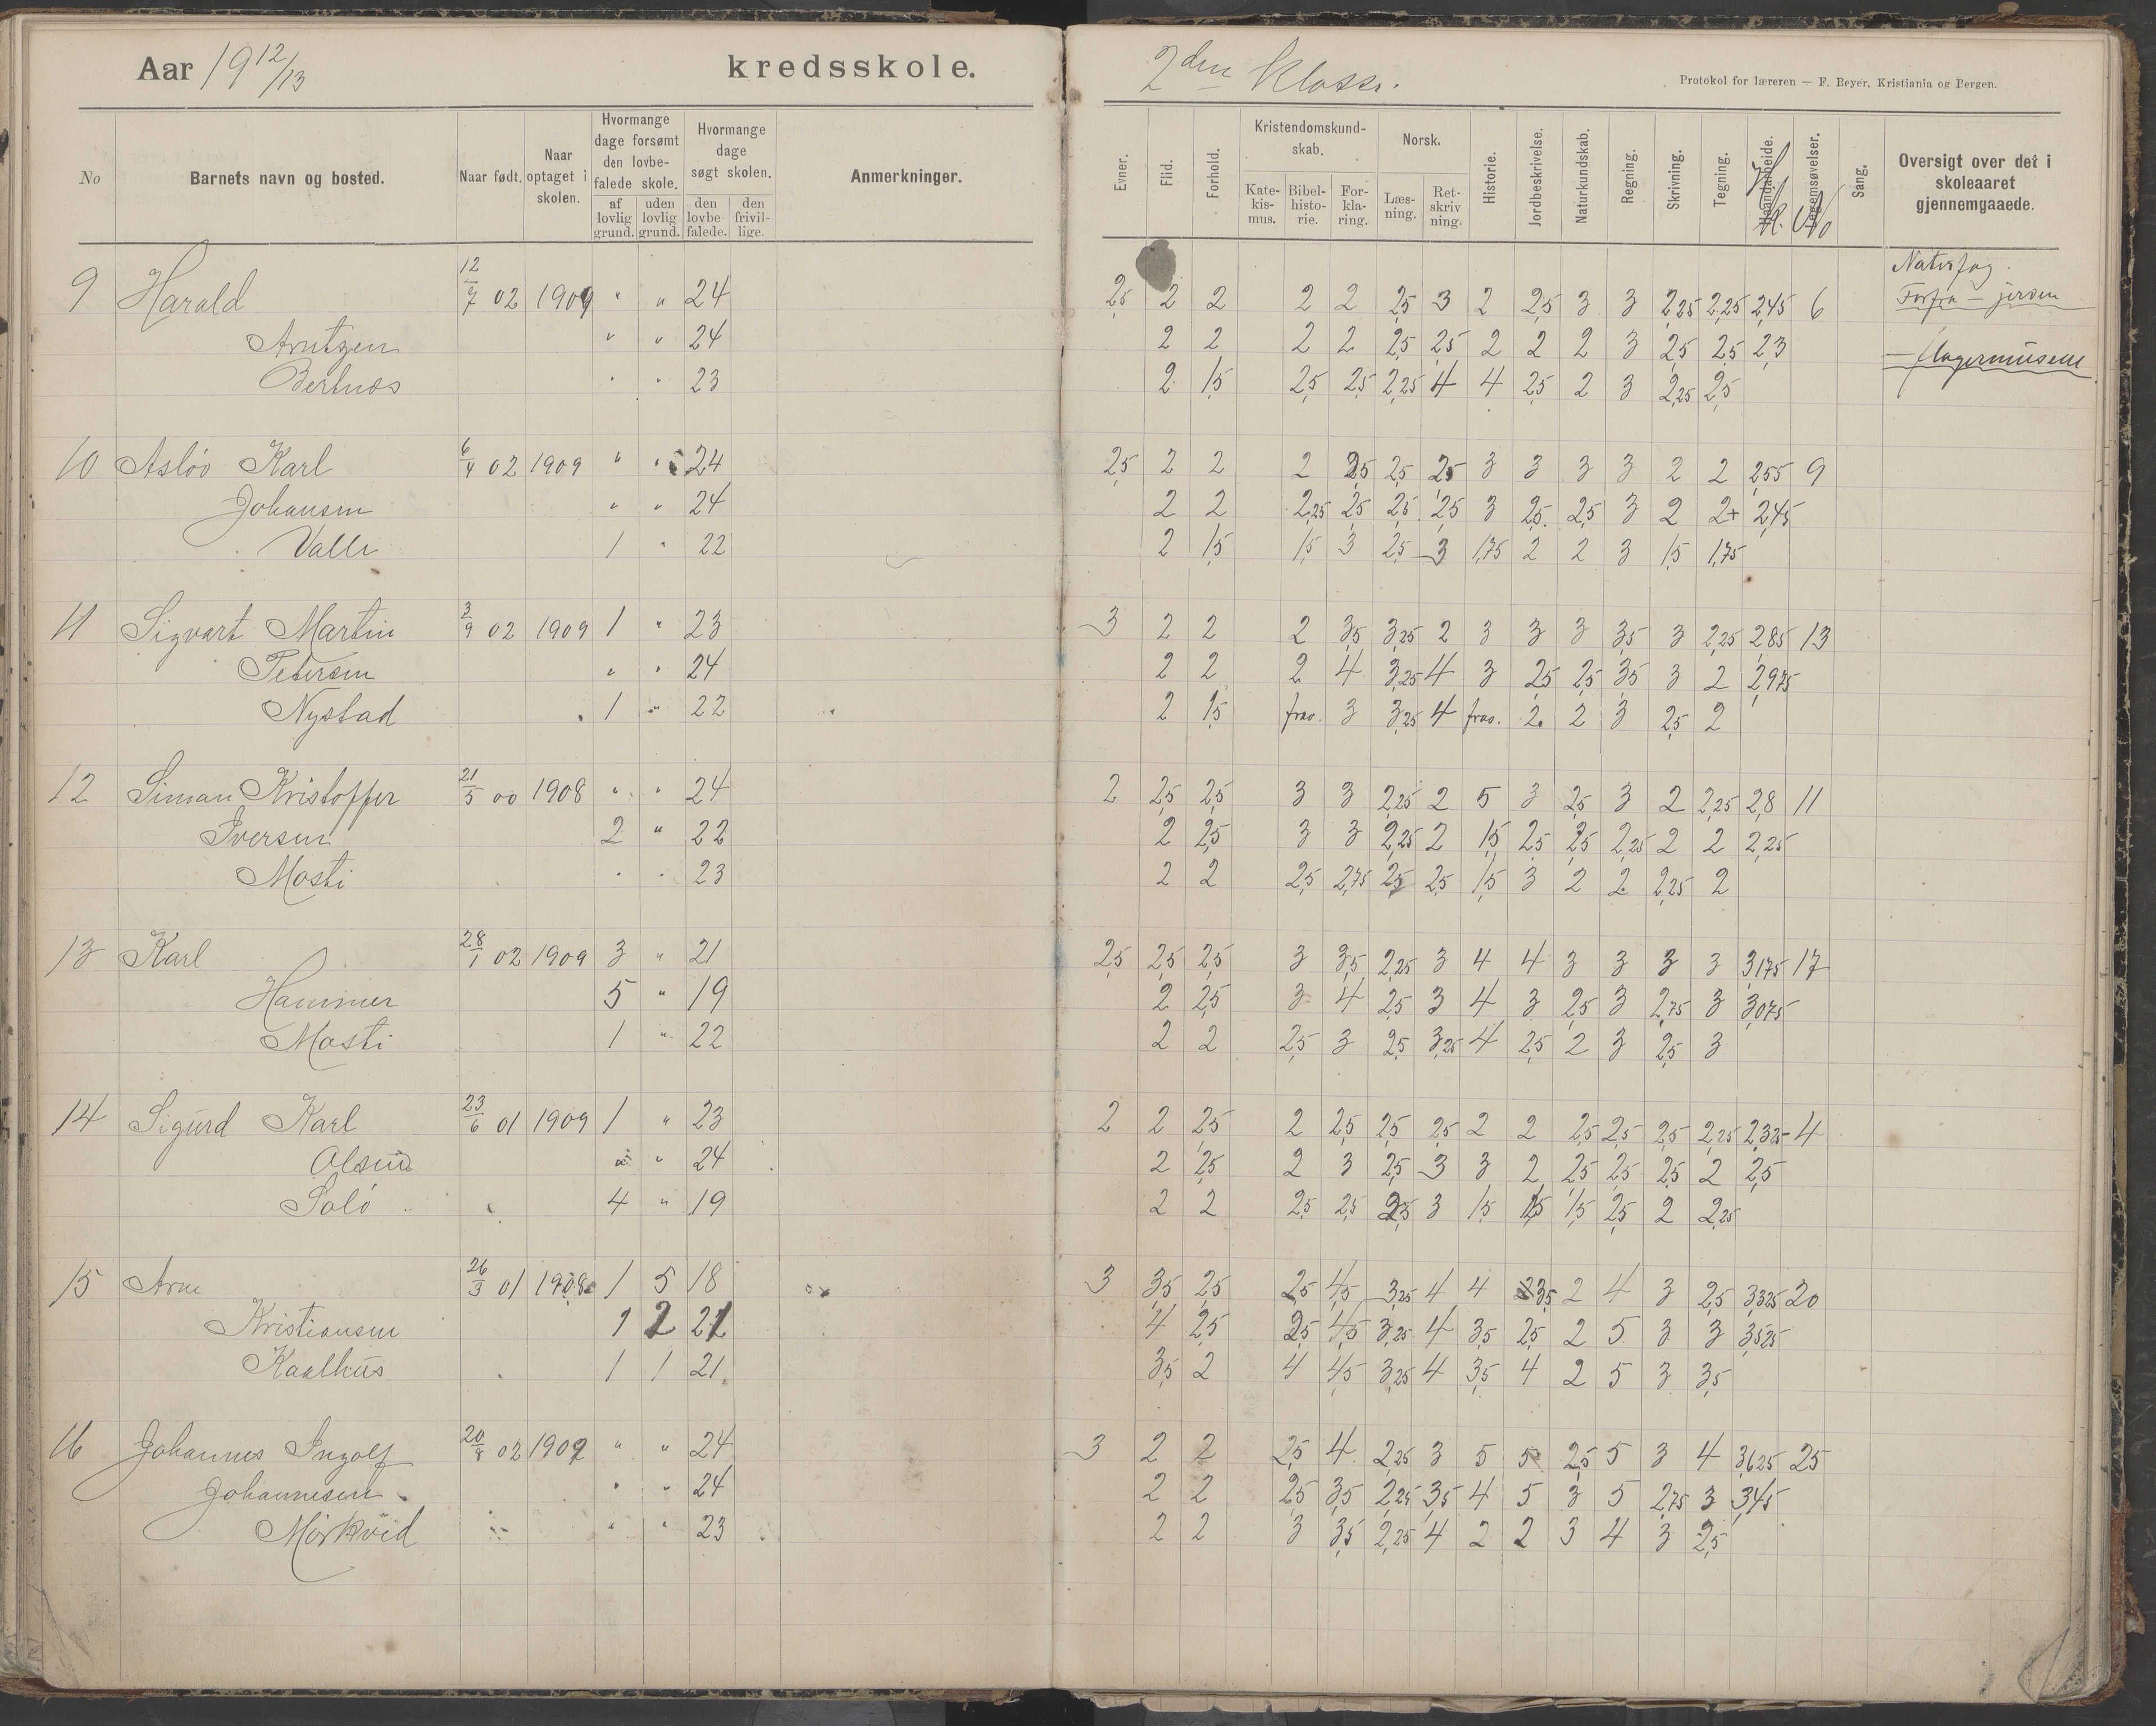 Aar 1912/13 kredsskole.
No Barnets navn og bosted. Naar født. Naar optaget i skolen. Hvormange dage forsømt den lovbefalede skole. af lovlig grund. uden lovlig grund. Hvormange dage søgt skolen. den lovbefalede. den frivillige. Anmerkninger.
9 Harald 12/7 02 1909 " " 24
Arntzen " " 24
Bertnes " " 23
10 Asløv Karl 6/4 02 1909 " " 24
Johansen " " 24
Valle 1 " 22
11 Sigvart Martin 3/9 02 1909 1 " 23
Petersen " " 24
Nystad 1 " 22
12 Siman Kristoffer 21/5 00 1908 " " 24
Iversen 2 " 22
Mosti " " 23
13 Karl 28/1 02 1909 3 " 21
Hammer 5 " 19
Mosti 1 " 22
14 Sigurd Karl 23/6 01 1909 1 " 23
Olsen " " 24
Solö 4 " 19
15 Arne 26/3 01 1908 1 5 18
Kristiansen 1 2 21
Kaalhus 1 1 21
16 Johannes Ingolf 20/8 02 1909 " " 24
Johannesen " " 24
Mörkved " " 23
2den Klasse.
Protokol for læreren — F. Beyer, Kristiania og Bergen.
Evner. Flid. Forhold. Kristendomskundskab. Katekismus. Bibelhistorie. Forklaring. Norsk. Læsning. Retskrivning. Historie. Jordbeskrivelse. Naturkundskab. Regning. Skrivning. Tegning. Haandarbeide. Legemsøvelser. Sang. Oversigt over det i skoleaaret gjennemgaaede.
Naturfag.
2,5 2 2 2 2 2,5 3 2 2,5 3 3 2,25 2,25 2,45 6 Forfra — jerven
2 2 2 2 2,5 2,5 2 2 2 3 2,5 2,5 2,3
— flagermusene
2 1,5 2,5 2,5 2,25 4 4 2,5 2 3 2,25 2,5
2,5 2 2 2 2,5 2,5 2,5 3 3 3 3 2 2 2,55 9
2 2 2,25 2,5 2,5 2,5 3 2,5 2,5 3 2 2+ 2,45
2 1,5 1,5 3 2,5 3 1,75 2 2 3 1,5 1,75
3 2 2 2 3,5 3,25 2 3 3 3 3,5 3 2,25 2,85 13
2 2 2 4 3,25 4 3 2,5 2,5 3,5 3 2 2,975
2 1,5 frav. 3 3,25 4 frav. 2 2 3 2,5 2
2 2,5 2,5 3 3 2,25 2 5 3 2,5 3 2 2,25 2,8 11
2 2,5 3 3 2,25 2 1,5 2,5 2,5 2,25 2 2 2,25
2 2 2,5 2,75 2,5 2,5 1,5 3 2 2 2,25 2
2,5 2,5 2,5 3 3,5 2,25 3 4 4 3 3 3 3 3,175 17
2 2,5 3 4 2,5 3 4 3 2,5 3 2,75 3 3,075
2 2 2,5 3 2,5 3,25 4 2,5 2 3 2,5 3
2 2 2,5 2 2,5 2,5 2,5 2 2 2,5 2,5 2,5 2,25 2,325 4
2 2,5 2 3 2,5 3 3 2 2,5 2,5 2,5 2 2,5
2 2 2,5 2,5 2,5 3 1,5 1,5 1,5 2,5 2 2,25
3 3,5 2,5 2,5 4,5 3,25 4 4 3,5 2 4 3 2,5 3,325 20
4 2,5 2,5 4,5 3,25 4 3,5 2,5 2 5 3 3 3,525
3,5 2 4 4,5 3,25 4 3,5 4 2 5 3 3,5
3 2 2 2,5 4 2,25 3 5 5 2,5 5 3 4 3,625 25
2 2 2,5 3,5 2,25 3,5 4 5 3 5 2,75 3 3,45
2 2 3 3,5 2,25 4 2 2 3 4 3 2,5